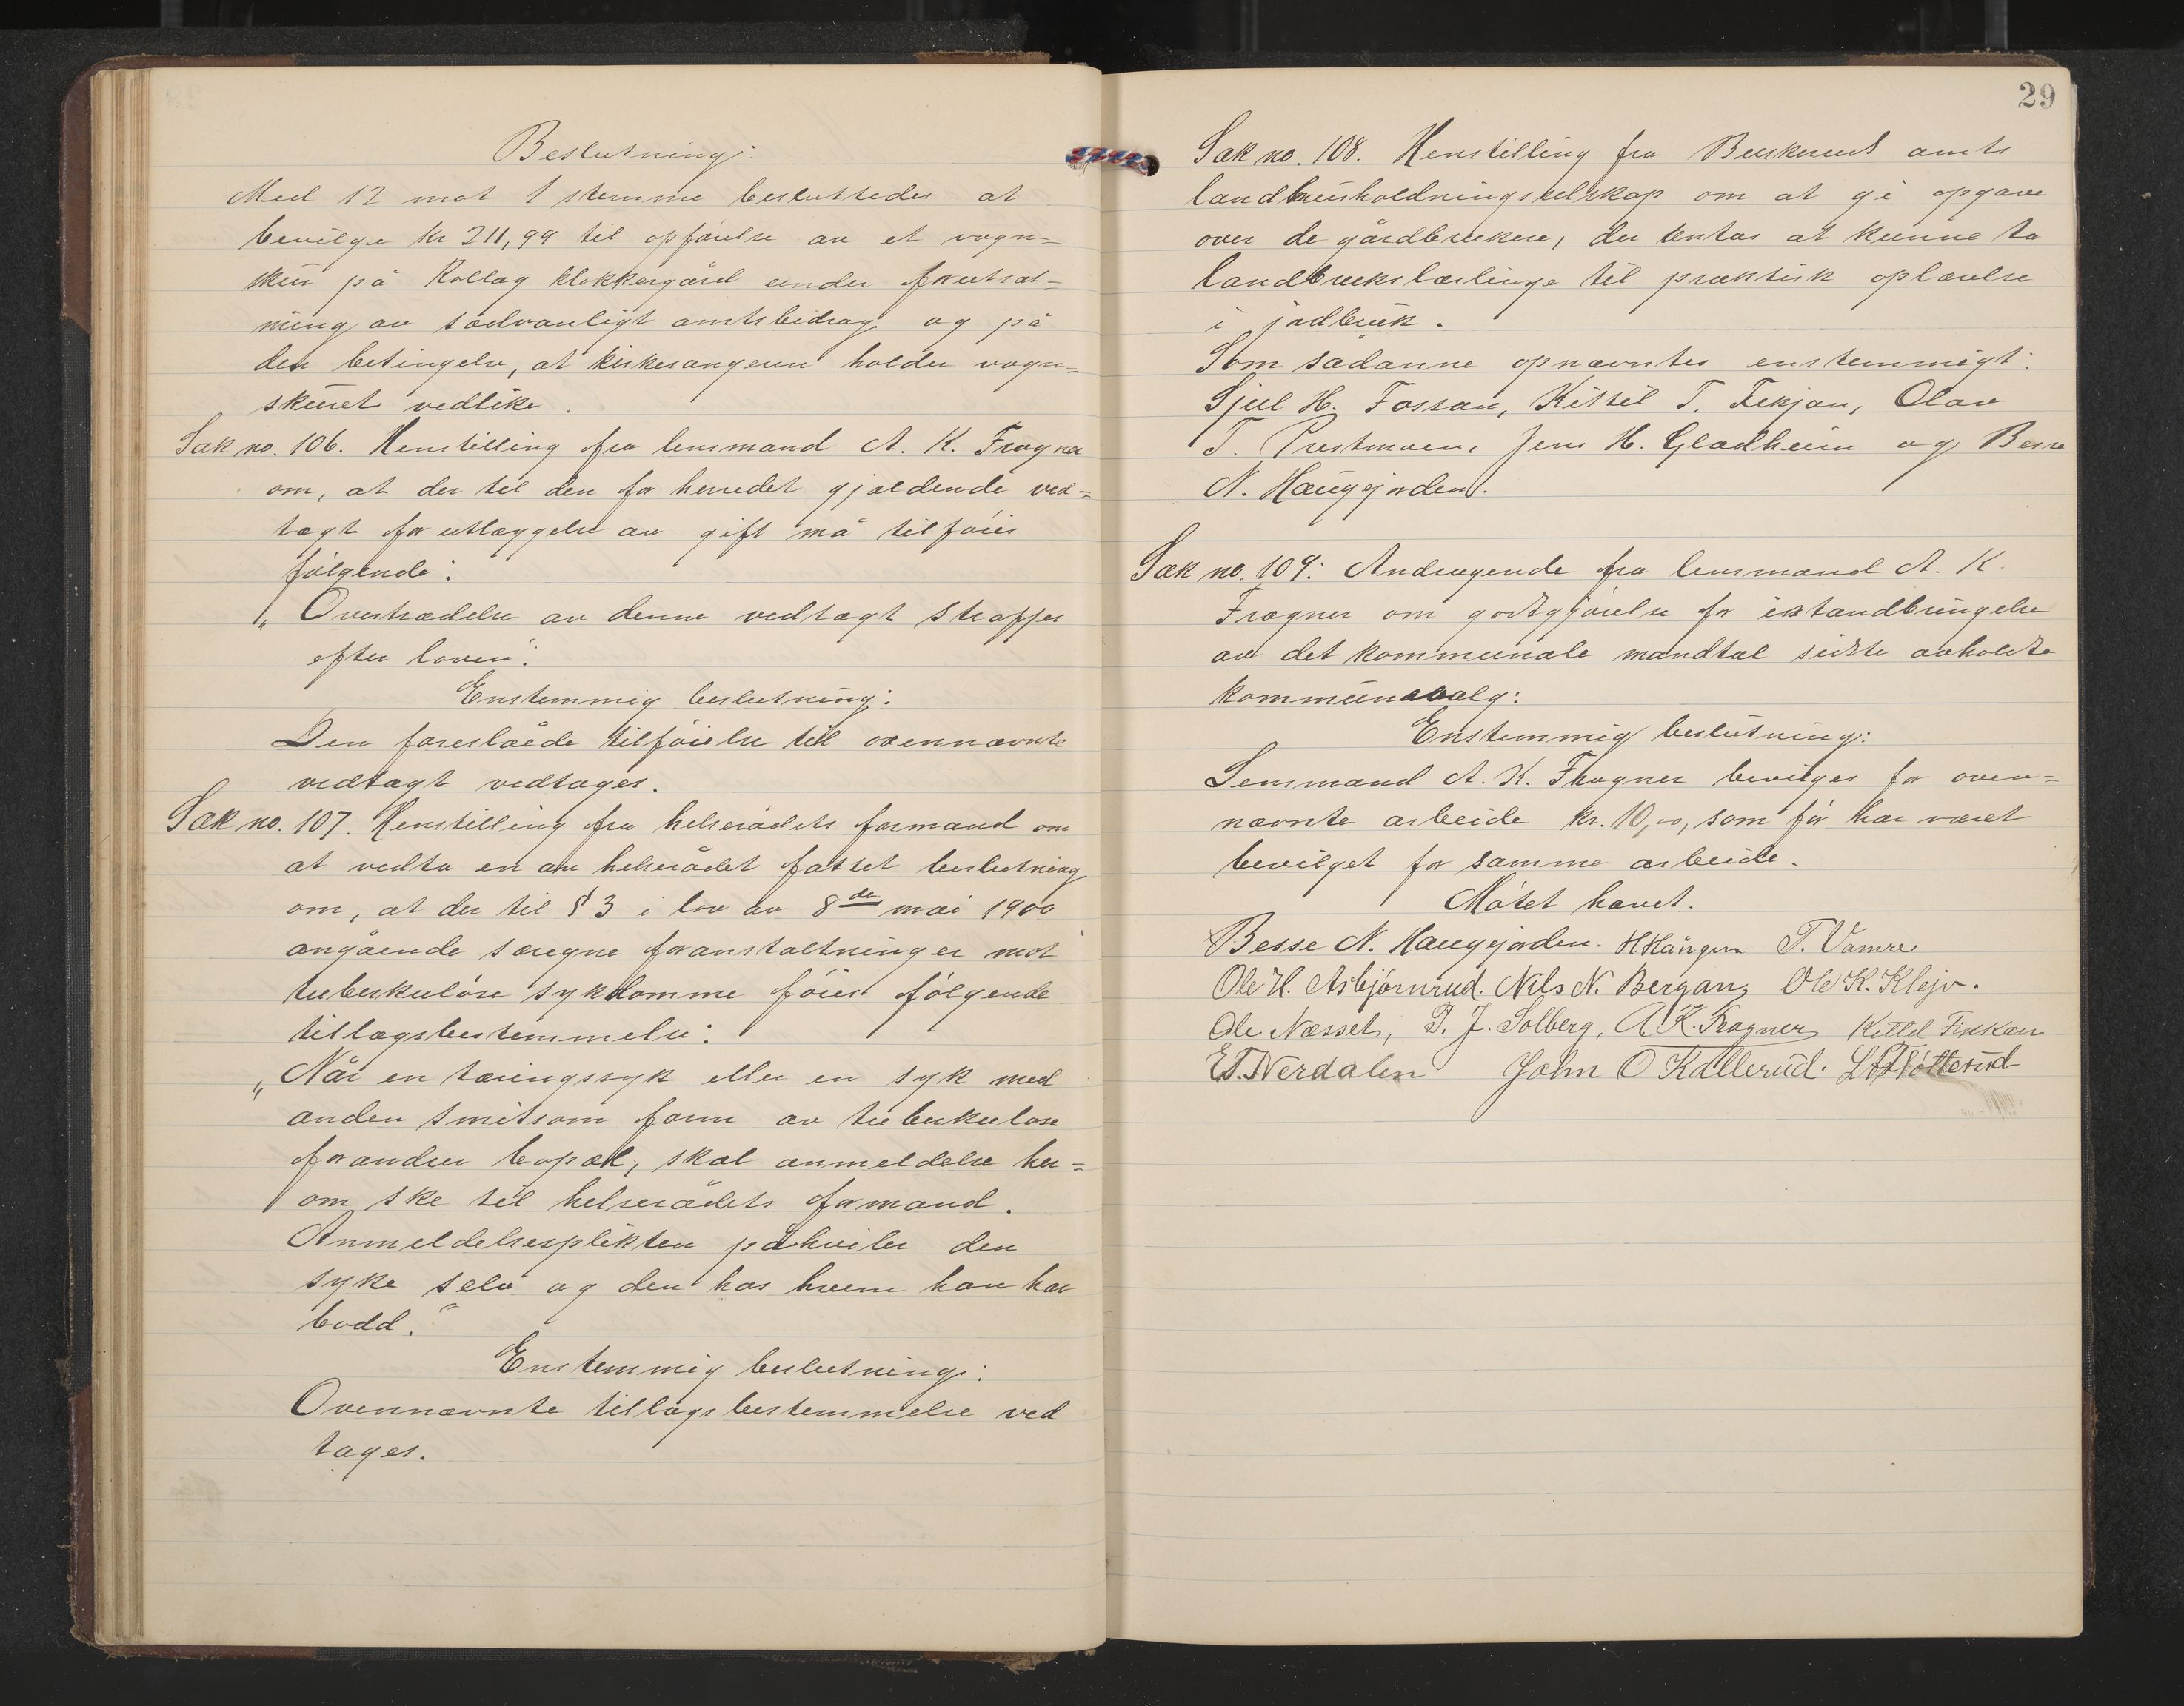 Beslutning:
Med 12 mot 1 stemme besluttedes at
bevilge kr 211,99 til opførelse av et vogn=
skur på Rollag klokkergård under forutsæt=
ning av sædvanligt amtsbidrag og på
den betingelse, at kirkesangeren holder vogn=
skuret vedlike.
Sak no. 106. Henstilling fra lensmand A. K. Fragner
om, at der til den for herredet gjældende ved=
tægt for utlæggelse av gift må tilføies
følgende:
„Overtrædelse av denne vedtægt straffes
efter loven".
Enstemmig beslutning:
Den foreslåede tilføielse til ovennævnte
vedtægt vedtages.
Sak no. 107. Henstilling fra helserådets formand om
at vedta en av helserådet fattet beslutning
om, at der til § 3 i lov av 8de mai 1900
angående særegne foranstaltninger mot
tuberkuløse sykdomme føies følgende
tillægsbestemmelse:
„Når en tæringssyk eller en syk med
anden smitsom form av tuberkulose
forandrer bopæl, skal anmeldelse her=
om ske til helserådets formand.
Anmeldelsesplikten påhviler den
syke selv og den hos hvem han har
bodd."
Enstemmig beslutning:
Ovennævnte tillægsbestemmelse ved
tages.
29
Sak no. 108. Henstilling fra Buskerud amts
landhusholdningsselskap om at gi opgave
over de gårdbrukere, der antas at kunne ta
landbrukslærlinge til praktisk oplærelse
i jordbruk.
Som sådanne opnævntes enstemmigt:
Sjul H. Fossan, Kittil T. Tekjan, Olav
T. Prestmoen, Jens H. Gladheim og Besse
N. Haugjorden.
Sak no. 109: Andragende fra lensmand A. K.
Fragner om godtgjørelse for istandbringelse
av det kommunale mandtal sidste avholdte
kommunevalg:
Enstemmig beslutning:
Lensmand A. K. Fragner bevilges for oven=
nævnte arbeide kr. 10,00, som før har været
bevilget for samme arbeide.
Møtet hævet.
Besse N. Haugjorden. H Haugen T. Vamre
Ole H. Asbjørnrud. Nils N. Bergan, Ole K. Klejv.
Ole Næsset, T. J. Solberg, A. K. Fragner Kittel
E T. Nerdalen John O Kallerud.